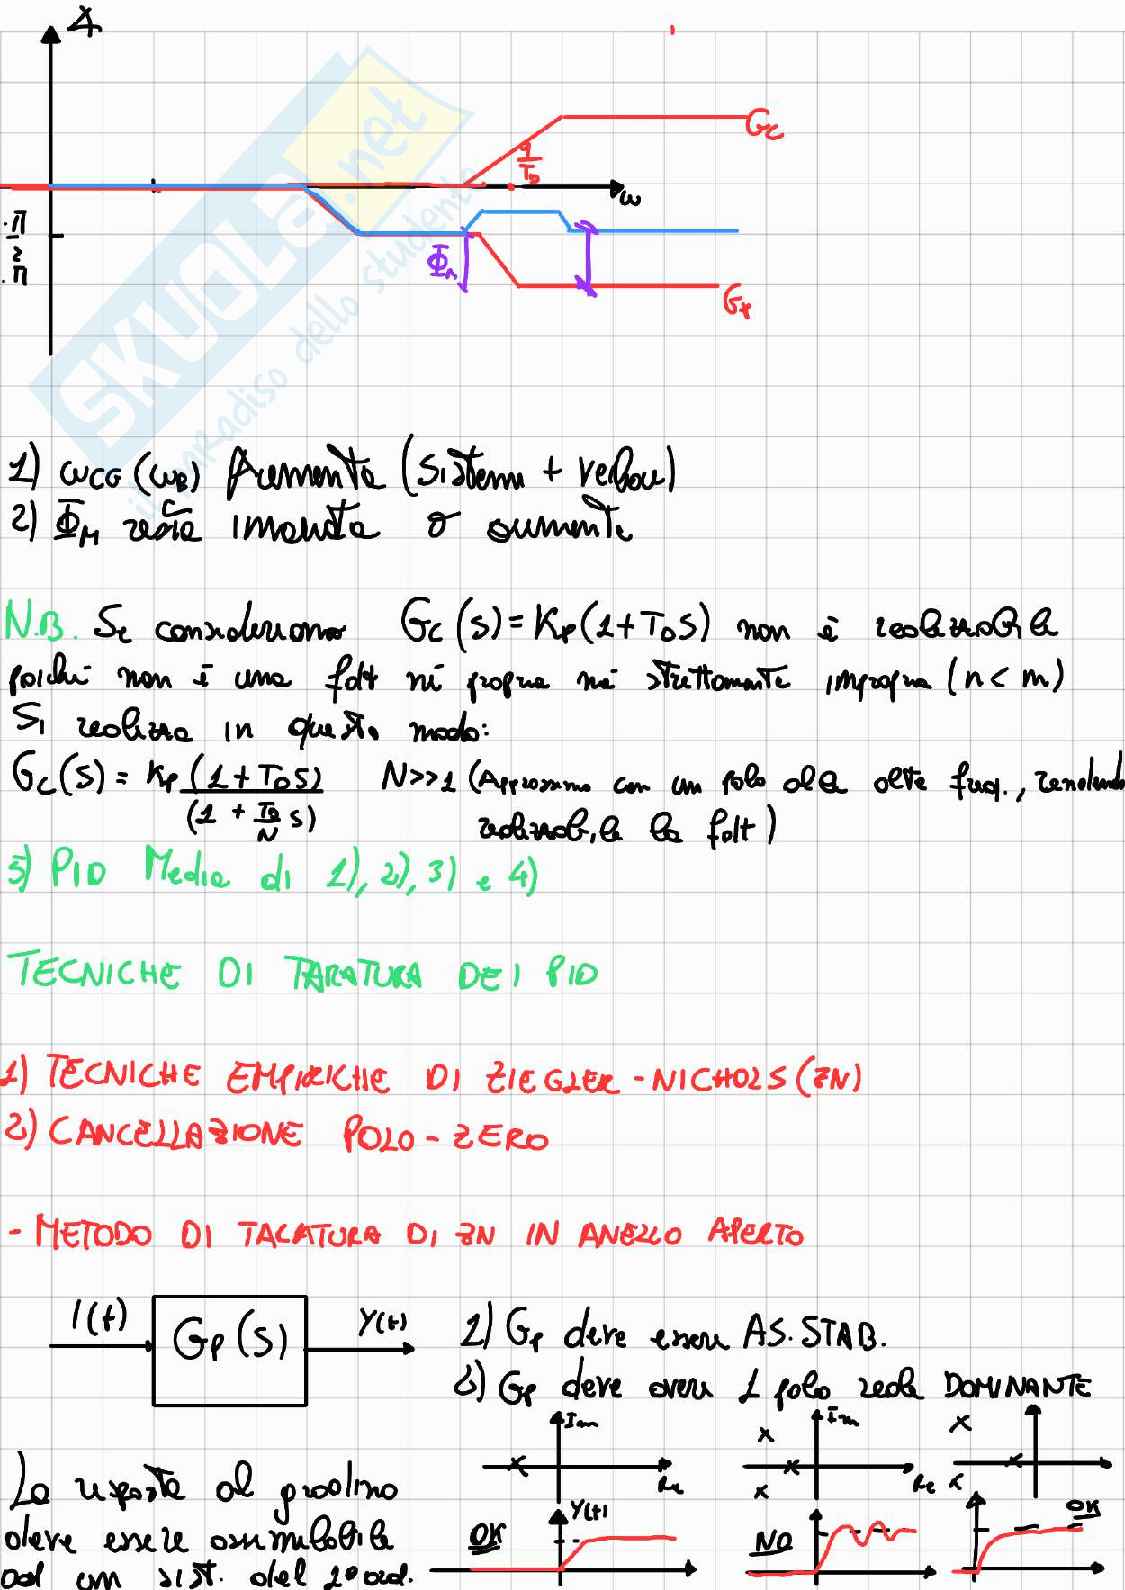 ∡
Gc
1/T_D
ω
-π/2
-π
Φm
Gp
SKUOLA.net
il paradiso dello studente
1) ωCG (ωB) aumenta (Sistema + veloce)
2) ΦM resta invariata o aumenta
N.B. Se consideriamo Gc(s) = Kp(1+TDS) non è realizzabile
poiché non è una fdt né propria né strettamente impropria (n < m)
Si realizza in questo modo:
Gc(s) = Kp (1+TDS) / (1 + TD/N s) N>>1 (Approssimo con un polo alle alte freq., rendendo
realizzabile la fdt)
5) PID Media di 1), 2), 3) e 4)
TECNICHE DI TARATURA DEI PID
1) TECNICHE EMPIRICHE DI ZIEGLER-NICHOLS (ZN)
2) CANCELLAZIONE POLO-ZERO
- METODO DI TARATURA DI ZN IN ANELLO APERTO
1(t) Gp(s) Y(t)
1) Gp deve essere AS. STAB.
2) Gp deve avere 1 polo reale DOMINANTE
Im Im
Re Re
La risposta al gradino
deve essere assimilabile
ad un sist. del 1° ord.
Y(t)
OK NO OK